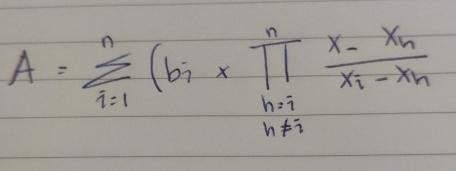 A = \sum_{i=1}^{n} (bi × \prod_{\substack{h=i \\ h≠i}}^{n} \frac{x - x_h}{x_i - x_h}